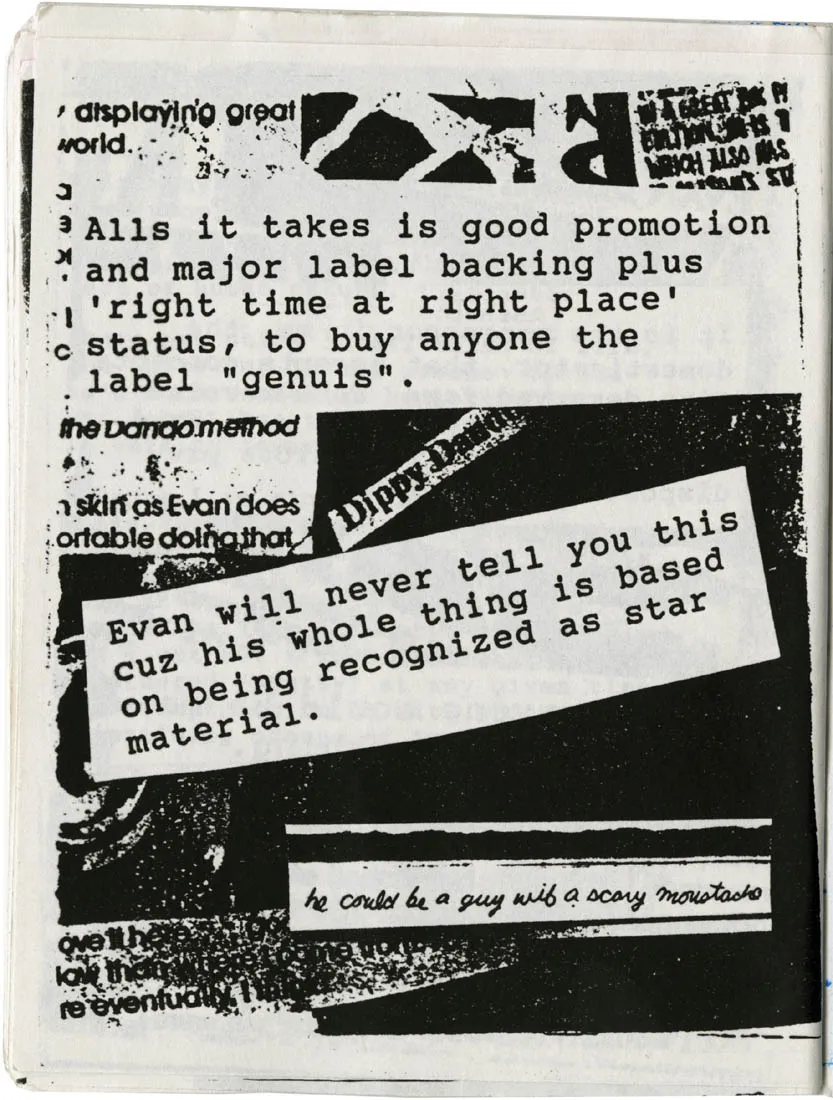 displaying great
world.
IN A GREAT
WHICH ALSO HAS
Alls it takes is good promotion
and major label backing plus
'right time at right place'
status, to buy anyone the
label "genuis".
the Dando method
skin as Evan does
ortable doing that
Dippy Dand
Evan will never tell you this
cuz his whole thing is based
on being recognized as star
material.
he could be a guy wif a scary moustache
ove it here
low than where I come from
re eventually, I